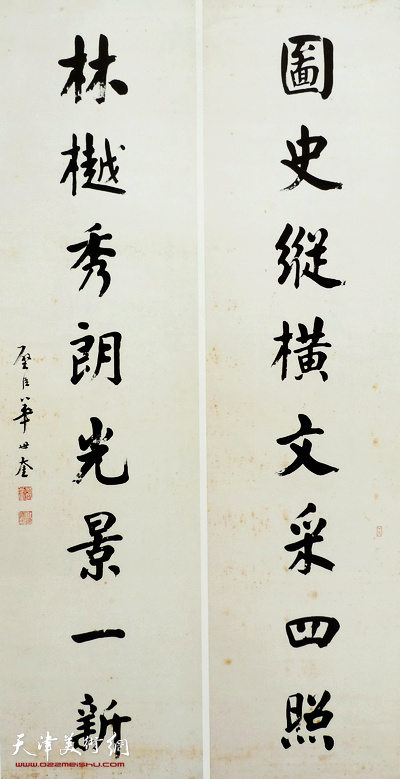 圖史縱橫文采四照
林樾秀朗光景一新
璧臣華世奎
天津美術網
www.022meishu.com